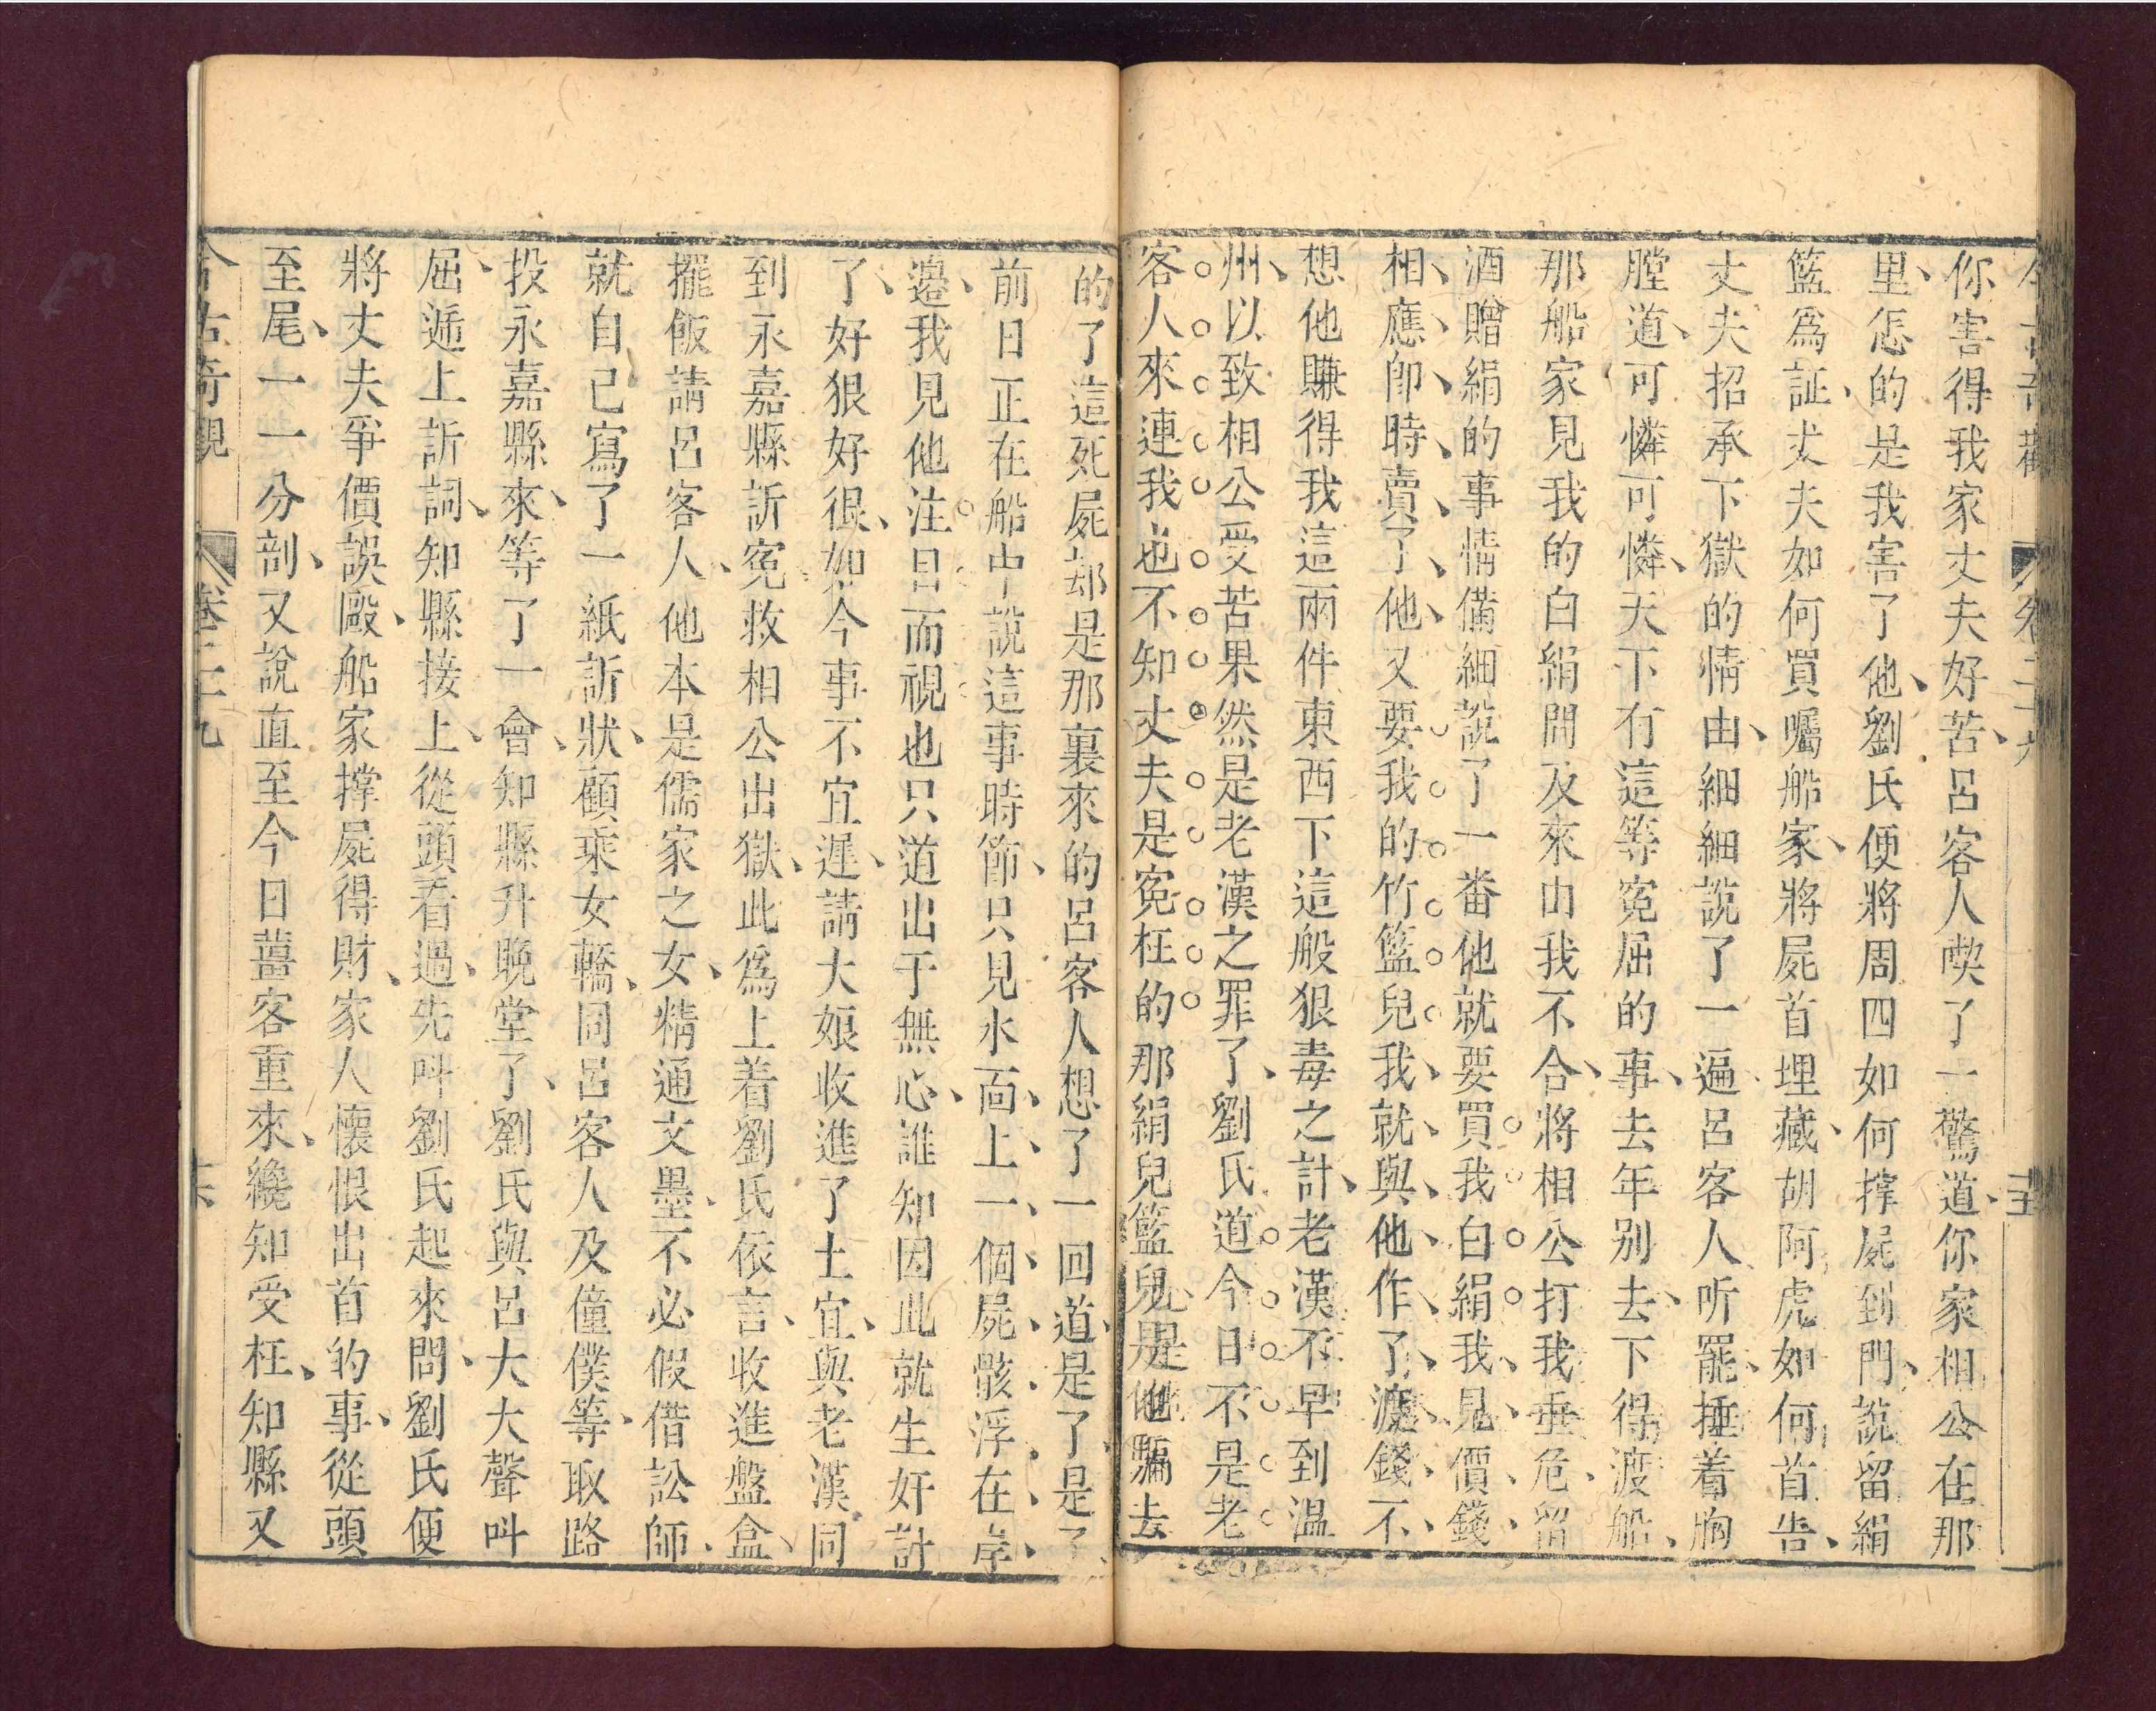 今古奇觀 卷二十九
你害得我家丈夫好苦、呂客人喫了一驚道、你家相公在那
里、怎的是我害了他、劉氏便將周四如何撑屍到門、說留絹
籃爲証、丈夫如何買囑船家、將屍首埋藏、胡阿虎如何首告、
丈夫招承下獄的情由、細細說了一遍呂客人听罷、捶着胸
膛道、可憐可憐、天下有這等寃屈的事、去年别去、下得渡船、
那船家見我的白絹問及來由我不合、將相公打我垂危、留
酒贈絹的事情備細說了一番他就要買我白絹我、見價錢、
相、應、卽、時、賣、了、他、又要我的竹籃兒我、就、與、他、作、了、渡、錢、不、
想他賺得我這兩件東西下這般狠毒之計、老漢不早到温
州、以致相公受苦果然是老漢之罪了、劉氏道今日不是老
客人來連我也不知丈夫是寃枉的那絹兒籃兒是他騙去
的了這死屍却是那裏來的呂客人想了一回道、是了、是了、
前日正在船中說這事時節、只見水面、上、一、個、屍、骸、浮、在、岸、
邉、我見他注目而視也只道出于無心、誰知因此就生奸計
了、好狠好很、如今事不宜遲、請大娘收進了土宜、與老漢同
到永嘉縣訴寃救相公出獄、此爲上着劉氏依言、收進盤盒、
擺飯請呂客人、他本是儒家之女、精通文墨、不必假借訟師、
就自己寫了一紙訴狀、顧乘女轎、同呂客人及僮僕等、取路
投永嘉縣來、等了一會、知縣升晚堂了、劉氏與呂大大聲叫
屈、遞上訴詞、知縣接上、從頭看過、先叫劉氏起來問、劉氏便
將丈夫爭價誤毆、船家撑屍得財、家人懷恨出首的事、從頭
至尾、一一分剖、又說直至今日薑客重來、纔知受枉、知縣又
今古奇觀 卷二十九